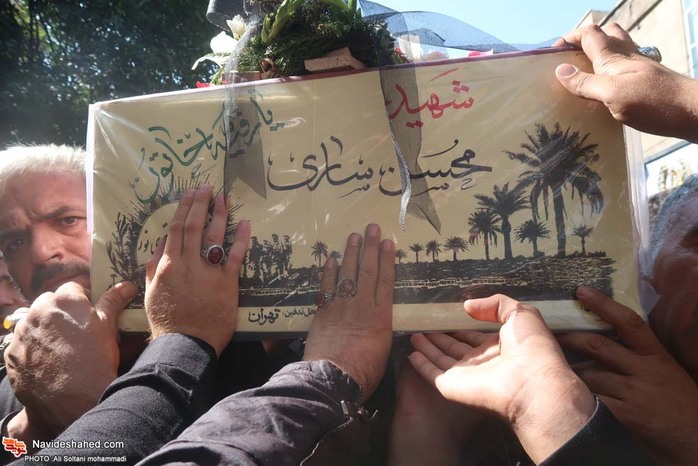 شهید
محسن ساری
محل تدفین: تهران
Navideshahed.com
PHOTO :Ali Soltani mohammadi